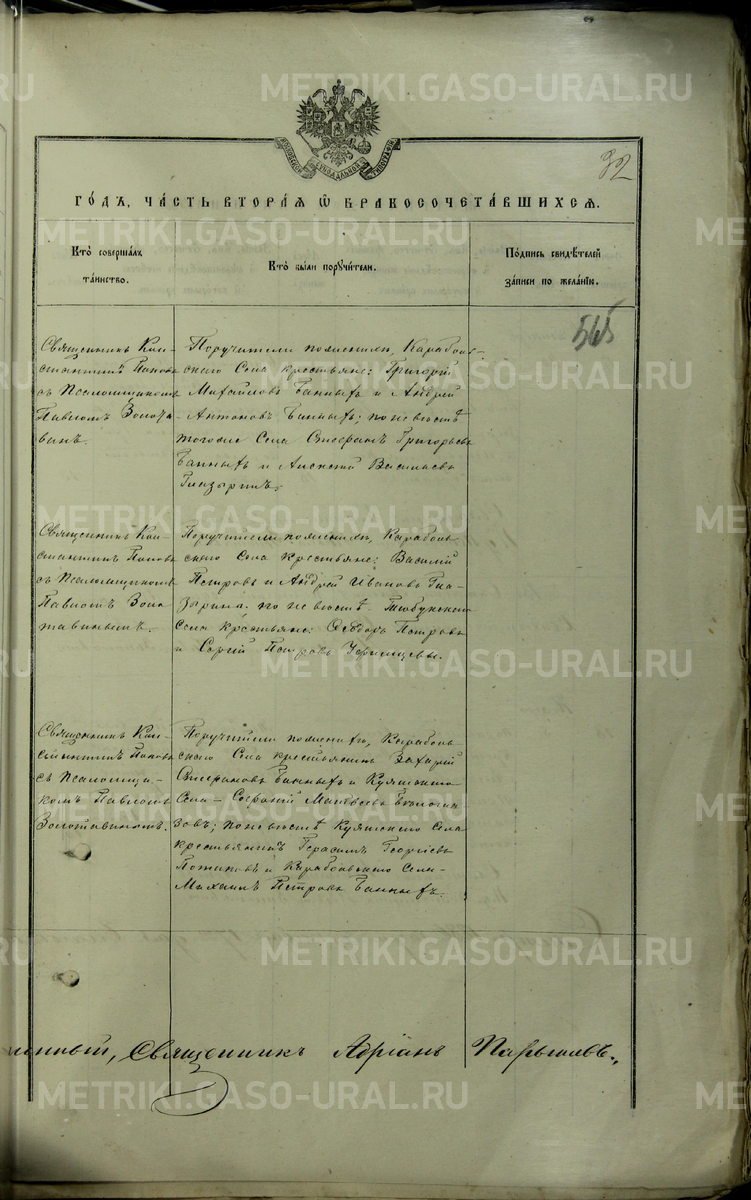 METRIKI.GASO-URAL.RU
32
МОСКОВСКОЙ СѴНОДАЛЬНОЙ ТИПОГРАФІИ
ГО́ДЪ, ЧА́СТЬ ВТОРА́Я Ѡ҆ БРАКОСОЧЕТА́ВШИХСЯ.
Кто̀ соверша́лъ
та́инство.
Кто̀ бы́ли порꙋчи́тели.
По́дпись свидѣ́телей
за́писи по жела́нїю.
565
Священникъ Кон-
стантинъ Поповъ
съ Псаломщикомъ
Павломъ Золота-
винъ.
Поручители по женихѣ, Караболь-
скаго Села крестьяне: Григорій
Михайловъ Банныхъ и Андрей
Антоновъ Банныхъ; по невѣстѣ
тогоже Села Григорьевъ
Банныхъ и Алексѣй Васильевъ
Глазыринъ.
Священникъ Кон-
стантинъ Поповъ
съ Псаломщикомъ
Павломъ Золо
тавинымъ.
Поручители по женихѣ, Караболь
скаго Села крестьяне: Василій
Петровъ и Андрей Ивановъ Гла-
зырины. по невѣстѣ Тюбукскаго
Села крестьяне: Ѳедоръ Петровъ
и Сергій Петровъ
Священникъ Кон-
стантинъ Поповъ
съ Псаломщи-
комъ Павломъ
Золотавинымъ.
Поручители по женихѣ, Караболь
скаго Села крестьянинъ Захарій
Банныхъ и Куяшскаго
Села – Софроній Матвѣевъ
зовъ; по невѣстѣ Куяшскаго Села
крестьянинъ Герасимъ Георгіевъ
и Карабольскаго Села
Михаилъ Петровъ Банныхъ.
Священникъ Адріанъ